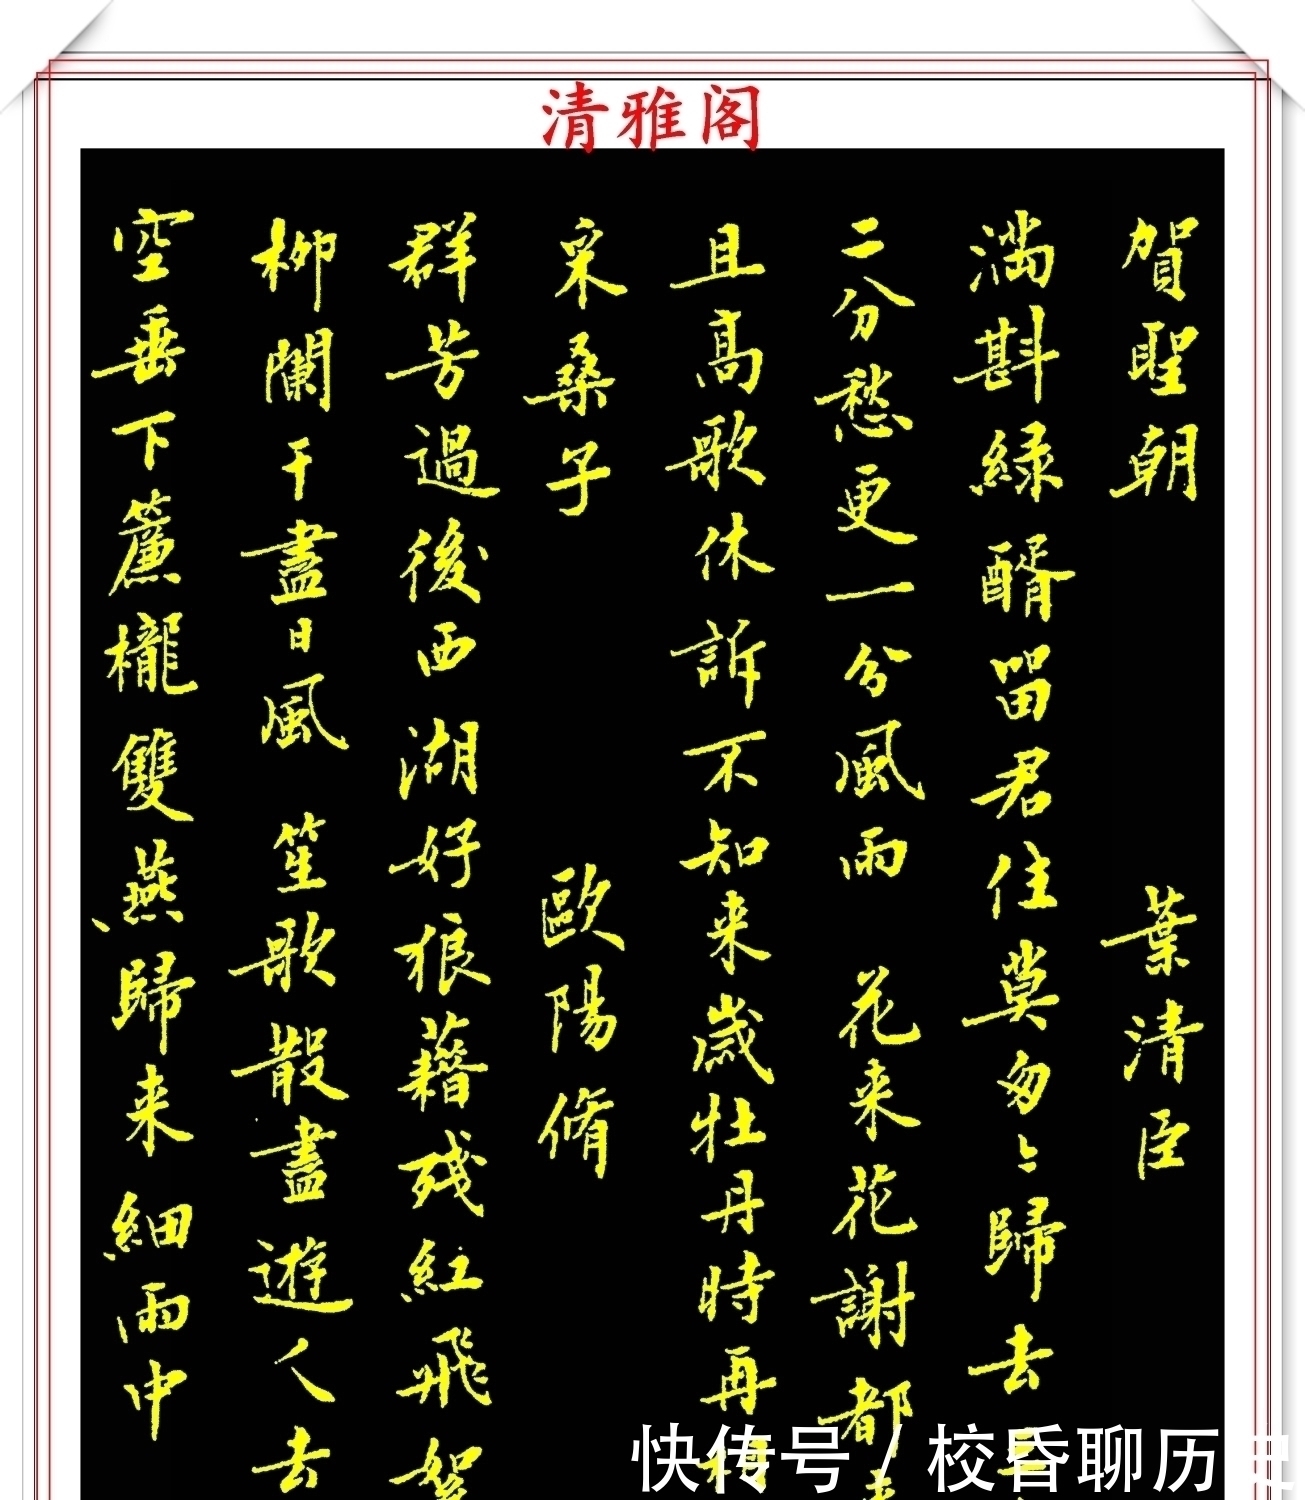 清雅阁
賀聖朝 葉清臣
满斟緑醑留君住莫匆〻歸去三
二分愁更一分風雨 花来花謝都来
且高歌休訴不知来歲牡丹時再相
采桑子 歐陽脩
群芳過後西湖好狼藉残紅飛絮
柳闌干盡日風 笙歌散盡遊人去
空垂下簾櫳雙燕歸来細雨中
快传号 / 校昏聊历史